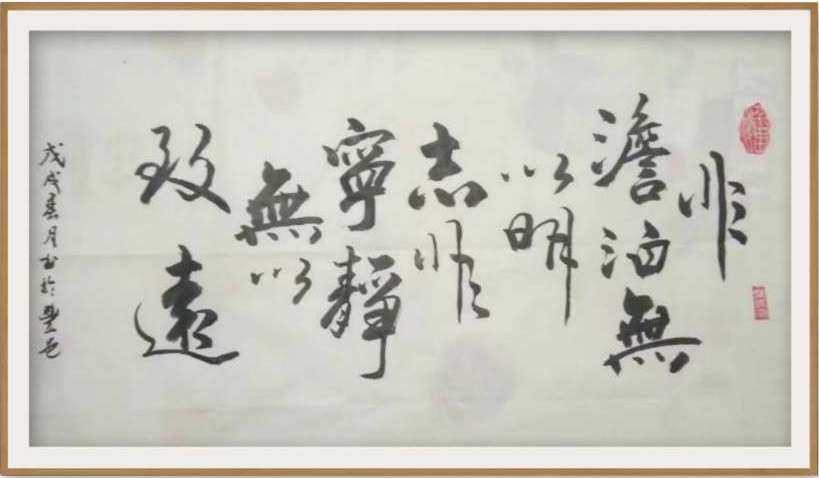 非
澹泊無
以明
志非
寧靜
無以
致遠
戊戌春月书於豐邑